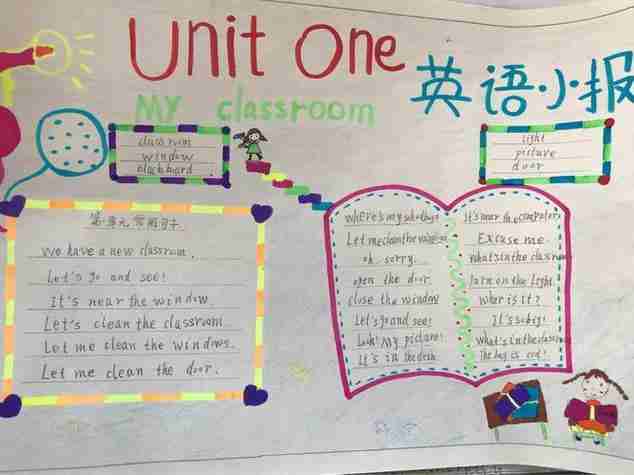 Unit One
英语小报
My classroom
classroom
window
blackboard.
light
picture
door
第一单元常用句子
We have a new classroom.
Let's go and see!
It's near the window.
Let's clean the classroom.
Let me clean the windows.
Let me clean the door.
where's my
Let me clean the
oh sorry.
open the door
close the window
Let's go and see!
Look! My picture!
It's in the desk.
It's near the computer.
Excuse me
what's in the classroom
turn on the Light.
wher is it?
It's so big!
what's in the classroom
The bag is red!